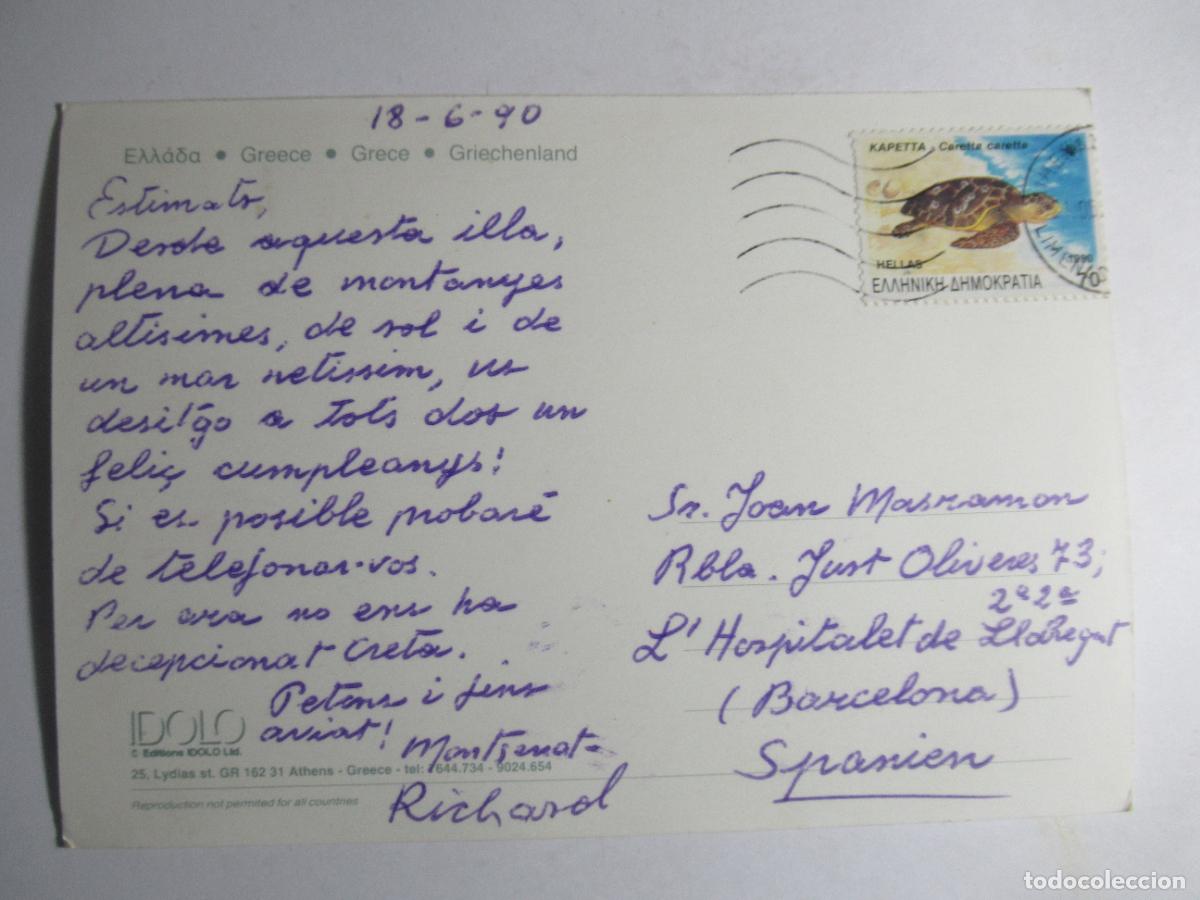 18-6-90
Ελλάδα • Greece • Grece • Griechenland
Estimats,
Desde aquesta illa,
plena de montanyes
altisimes, de sol i de
un mar netissim, us
desitgo a tots dos un
feliç cumpleanys!
Si es posible probaré
de telefonar-vos.
Per ara no ens ha
decepcionat Creta.
Petons i fins
aviat!
Montserrat-
Richard
IDOLO
© Editions IDOLO Ltd.
25, Lydias st. GR 162 31 Athens - Greece - tel: 7644.734 - 9024.654
Reproduction not permited for all countries
ΚΑΡΕΤΤΑ - Caretta caretta
HELLAS
1990
ΕΛΛΗΝΙΚΗ ΔΗΜΟΚΡΑΤΙΑ
70
Sr. Joan Masramon
Rbla. Just Oliveres 73;
2ª 2ª
L'Hospitalet de Llobregat
(Barcelona)
Spanien
todocoleccion